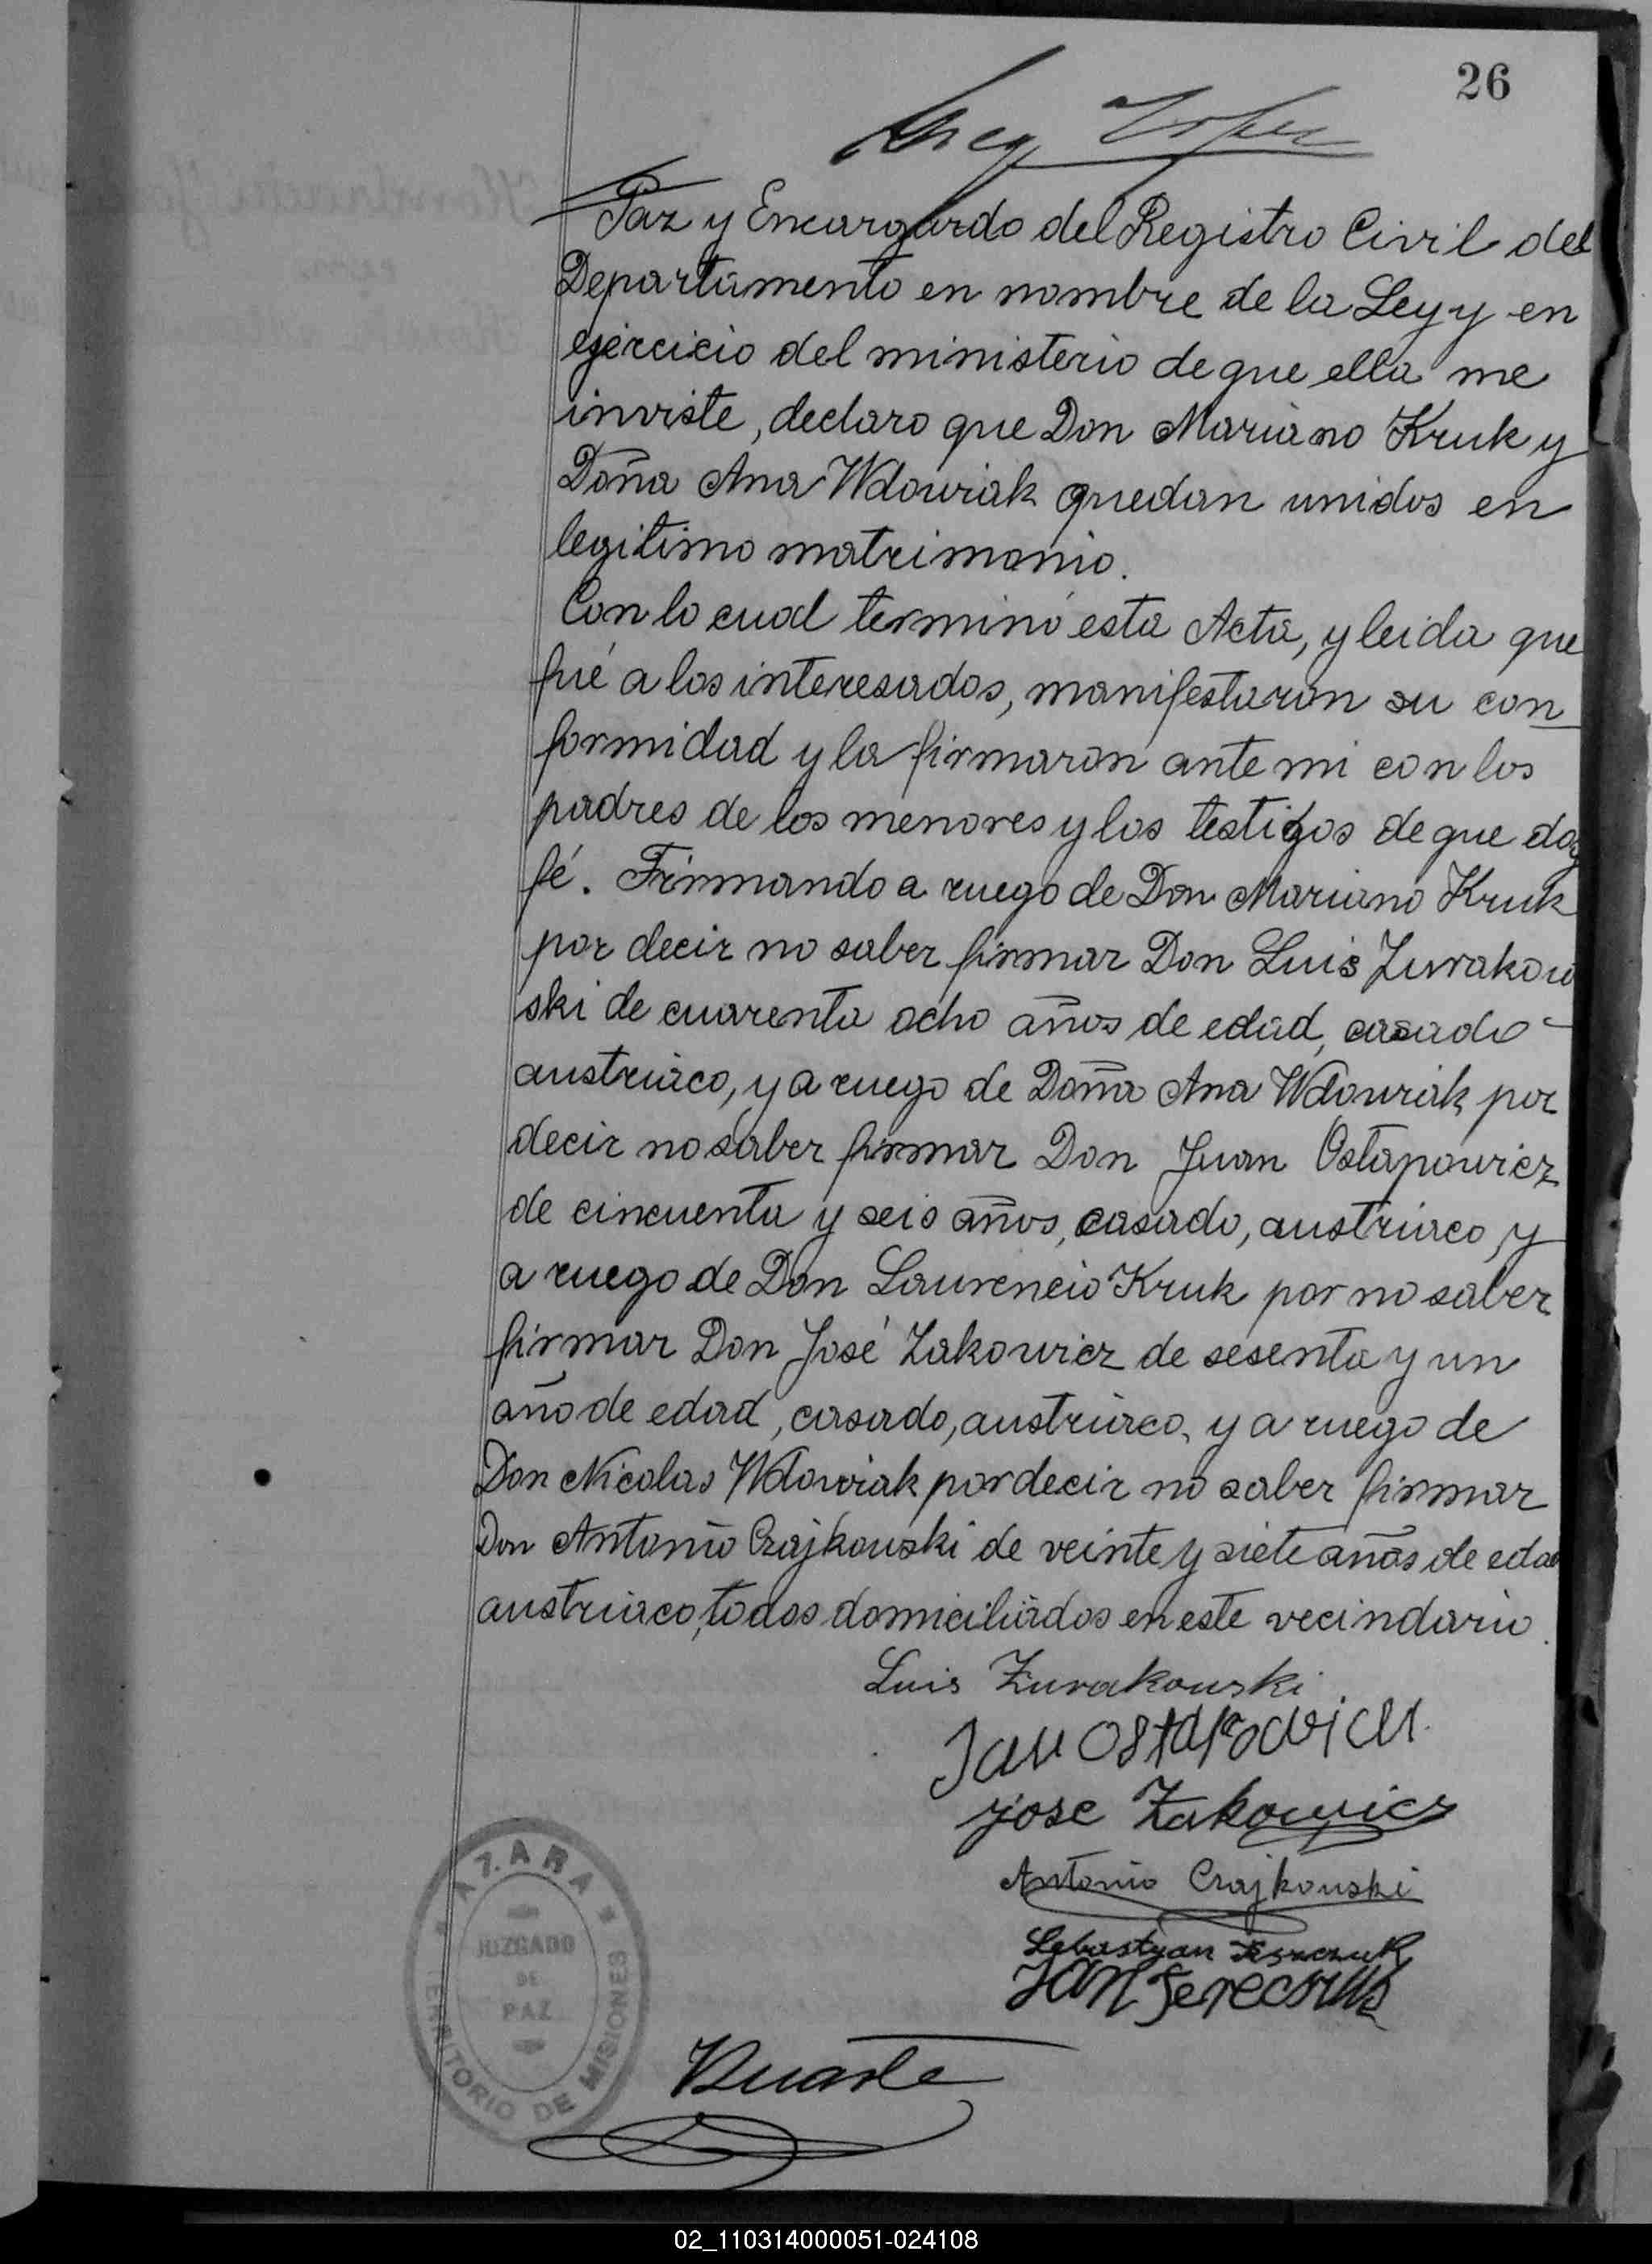 26
Paz y Encargado del Registro Civil del
Departamento en nombre de la Ley y en
ejercicio del ministerio de que ella me
inviste, declaro que Don Mariano Kruk y
Doña Ana Wdowiak quedan unidos en
legitimo matrimonio.
Con lo cual terminó esta Acta, y leida que
fué a los interesados, manifestaron su con
formidad y la firmaron ante mi con los
padres de los menores y los testigos de que doy
fé. Firmando a ruego de Don Mariano Kruk
por decir no saber firmar Don Luis Zurakow
ski de cuarenta ocho años de edad, casado
austriaco, y a ruego de Doña Ana Wdowiak por
decir no saber firmar Don Juan Ostapowicz
de cincuenta y seis años, casado, austriaco, y
a ruego de Don Laurencio Kruk por no saber
firmar Don José Zakowicz de sesenta y un
año de edad, casado, austriaco, y a ruego de
Don Nicolas Wdowiak por decir no saber firmar
Don Antonio Czajkowski de veinte y siete años de edad
austriaco, todos domiciliados en este vecindario.
Luis Zurakowski
Jan Ostapowicz
jose Zakowicz
Antonio Czajkowski
Sebastyan
Jan
AZARA
JUZGADO
DE
PAZ
TERRITORIO DE MISIONES
Duarte
02_110314000051-024108